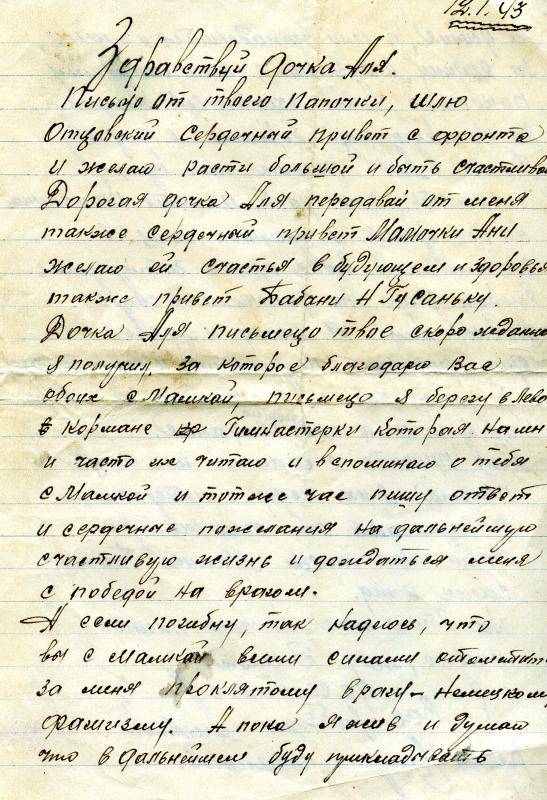 12.1.43
Здравствуй дочка Аля.
Письмо от твоего Папочки, шлю
Отцовский Сердечный привет с фронта
и желаю расти большой и быть счастливой
Дорогая дочка Аля передавай от меня
также сердечный привет Мамочки Ани
желаю ей счастья в будующем и здоровья
также привет Бабани и Гусаньку.
Дочка Аля письмецо твое скоро
я получил, за которое благодарю Вас
обоих с Мамкой, письмецо я берегу в лево
в Кормане Гимнастерки которая на мн
и часто их читаю и вспоминаю о тебя
с Мамкой и тотже час пишу ответ
и сердечные пожелания на дальнейшую
счастливую жизнь и дождаться меня
с победой на врагом.
А если погибну, так надеюсь, что
вы с Мамкой всеми силами отомстит
за меня проклятому врагу - Немецкому
фашизму. А пока я жив и думаю
что в дальнейшем буду прикладывать